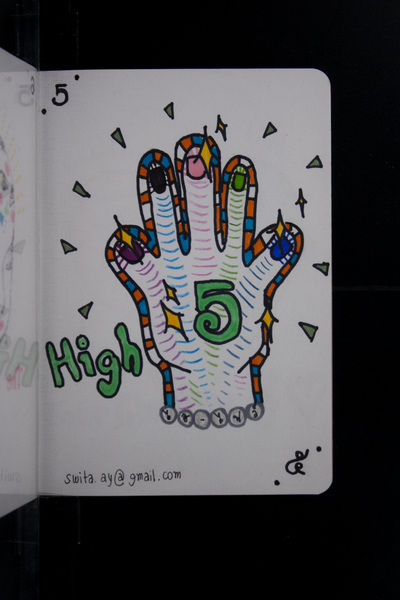 5
5
High
swita.ay@gmail.com